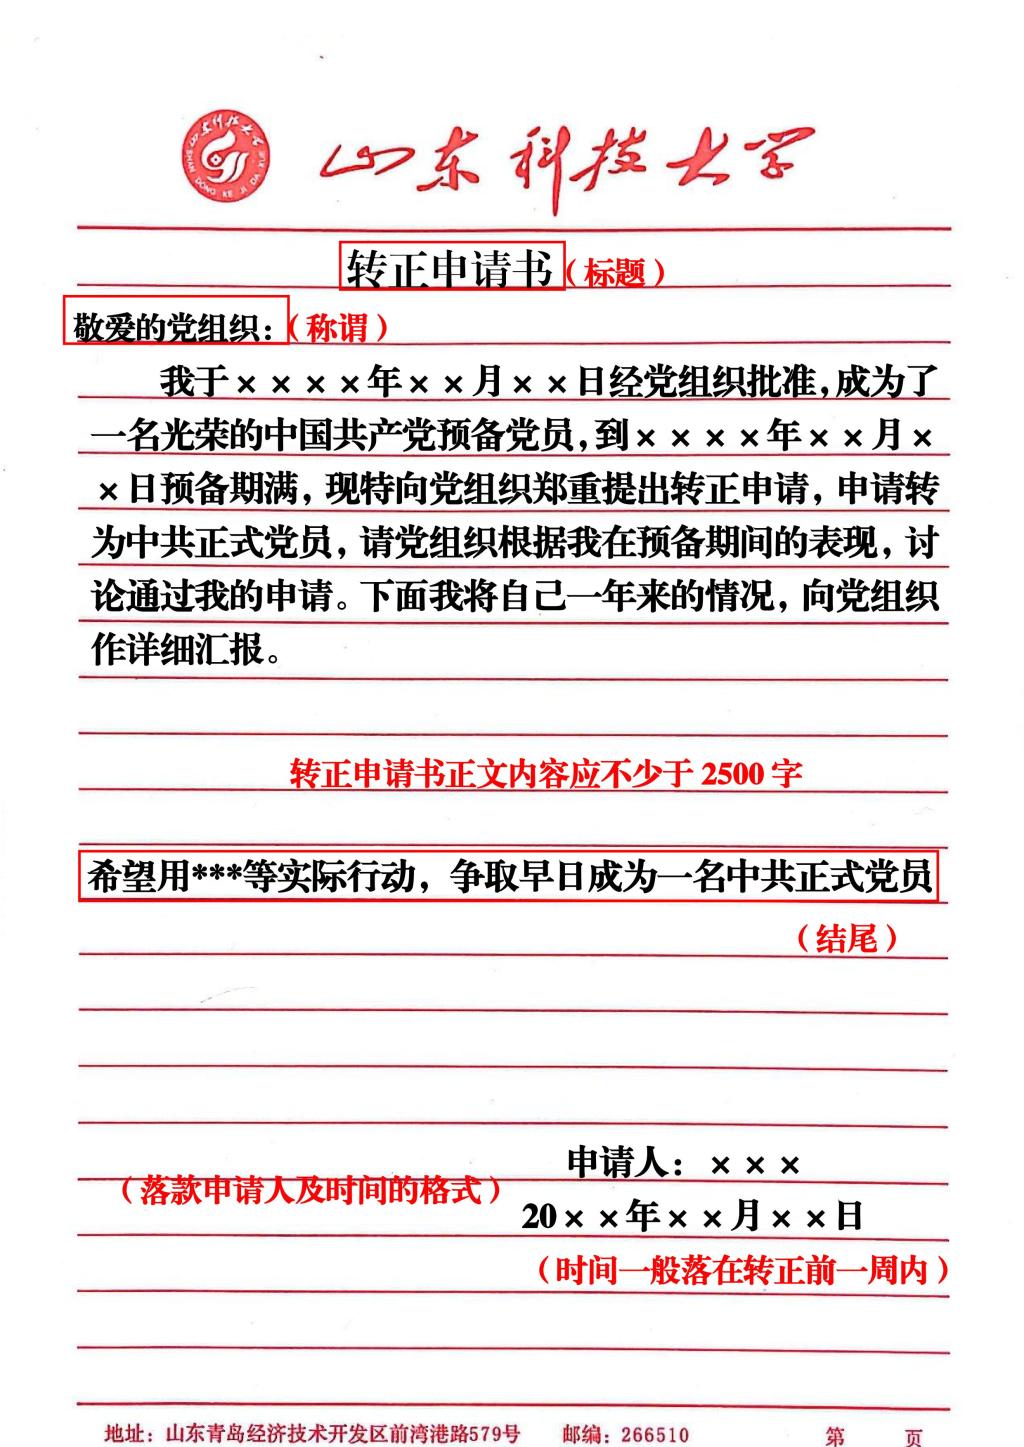 山东科技大学
SHAN DONG KE JI DA XUE
转正申请书（标题）
敬爱的党组织：（称谓）
我于××××年××月××日经党组织批准，成为了
一名光荣的中国共产党预备党员，到××××年××月×
×日预备期满，现特向党组织郑重提出转正申请，申请转
为中共正式党员，请党组织根据我在预备期间的表现，讨
论通过我的申请。下面我将自己一年来的情况，向党组织
作详细汇报。
转正申请书正文内容应不少于 2500 字
希望用***等实际行动，争取早日成为一名中共正式党员
（结尾）
申请人：×××
（落款申请人及时间的格式）
20××年××月××日
（时间一般落在转正前一周内）
地址：山东青岛经济技术开发区前湾港路579号 邮编：266510 第 页